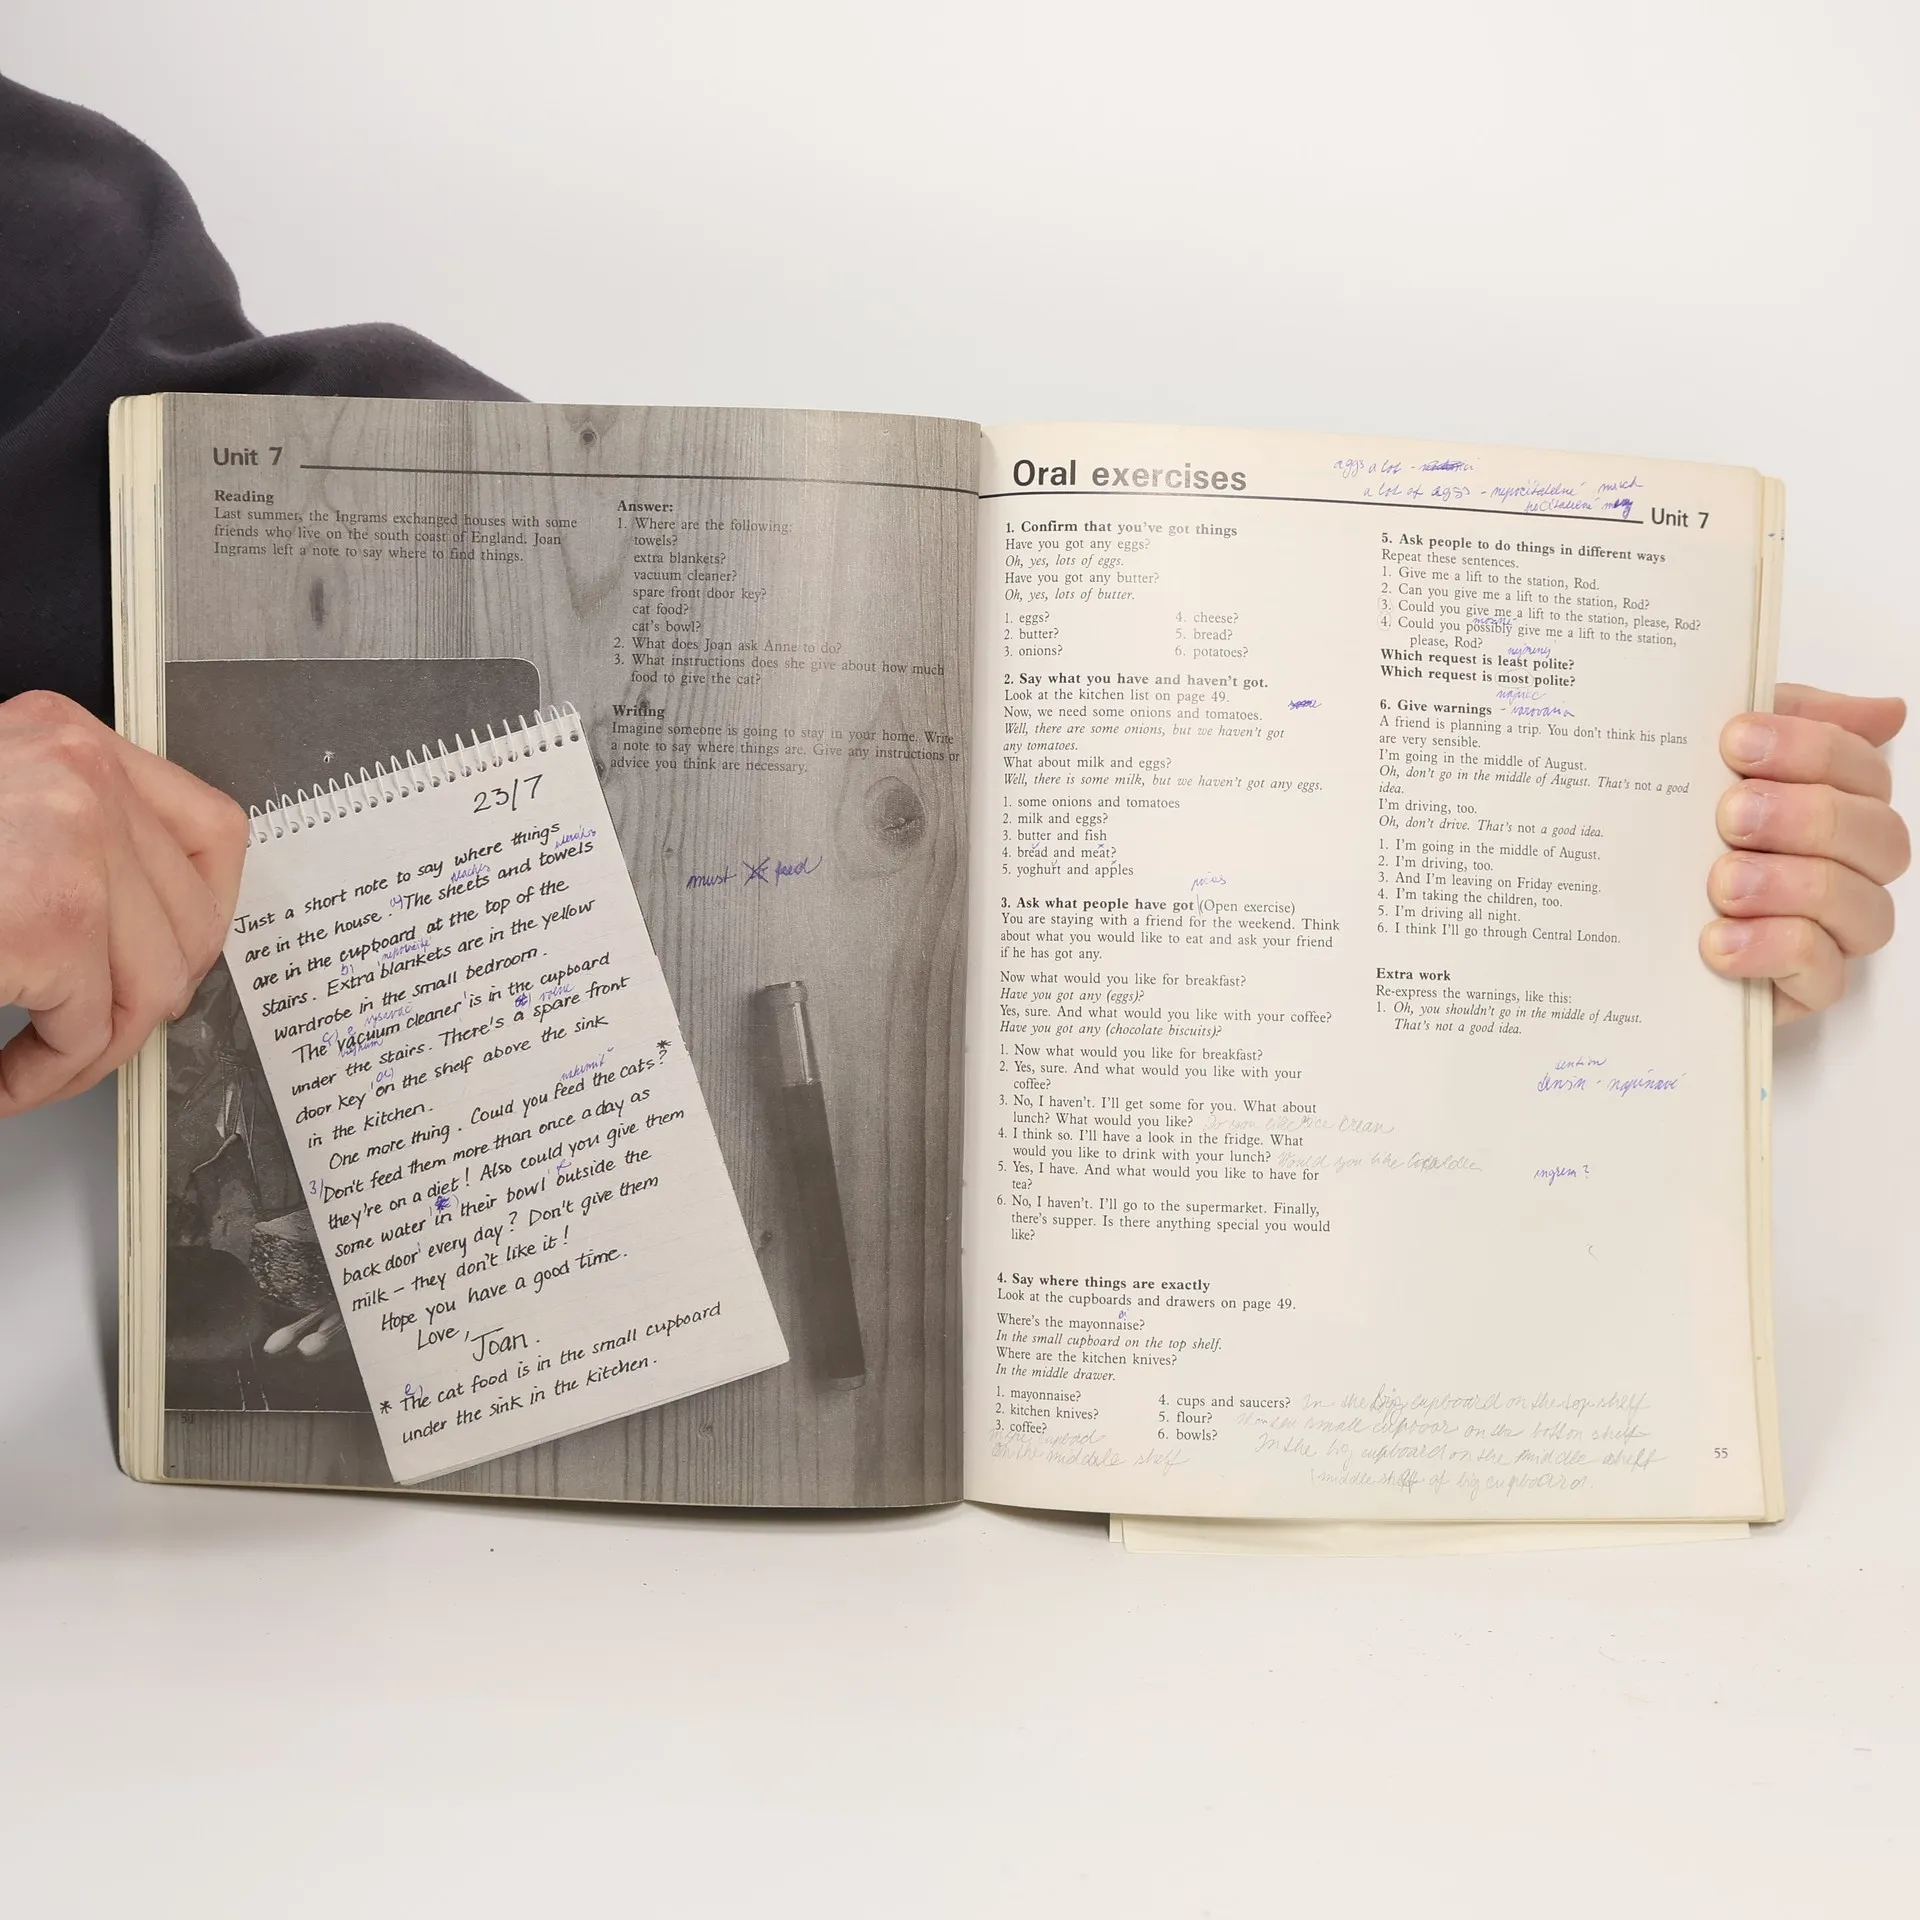 Unit 7
Reading
Last summer, the Ingrams exchanged houses with some
friends who live on the south coast of England. Joan
Ingrams left a note to say where to find things.
Answer:
1. Where are the following:
towels?
extra blankets?
vacuum cleaner?
spare front door key?
cat food?
cat's bowl?
2. What does Joan ask Anne to do?
3. What instructions does she give about how much
food to give the cat?
Writing
Imagine someone is going to stay in your home. Write
a note to say where things are. Give any instructions or
advice you think are necessary.
must feed
23/7
Just a short note to say where things
are in the house. The sheets and towels
are in the cupboard at the top of the
stairs. Extra blankets are in the yellow
wardrobe in the small bedroom.
The vacuum cleaner is in the cupboard
under the stairs. There's a spare front
door key on the shelf above the sink
in the kitchen.
One more thing. Could you feed the cats?*
3) Don't feed them more than once a day as
they're on a diet! Also could you give them
some water in their bowl outside the
back door every day? Don't give them
milk – they don't like it!
Hope you have a good time.
Love,
Joan.
* The cat food is in the small cupboard
under the sink in the kitchen.
Oral exercises
aggs a lot -
a lot of aggs -
Unit 7
1. Confirm that you've got things
Have you got any eggs?
Oh, yes, lots of eggs.
Have you got any butter?
Oh, yes, lots of butter.
1. eggs?
2. butter?
3. onions?
4. cheese?
5. bread?
6. potatoes?
2. Say what you have and haven't got.
Look at the kitchen list on page 49.
Now, we need some onions and tomatoes.
Well, there are some onions, but we haven't got
any tomatoes.
What about milk and eggs?
Well, there is some milk, but we haven't got any eggs.
1. some onions and tomatoes
2. milk and eggs?
3. butter and fish
4. bread and meat?
5. yoghurt and apples
3. Ask what people have got (Open exercise)
You are staying with a friend for the weekend. Think
about what you would like to eat and ask your friend
if he has got any.
Now what would you like for breakfast?
Have you got any (eggs)?
Yes, sure. And what would you like with your coffee?
Have you got any (chocolate biscuits)?
1. Now what would you like for breakfast?
2. Yes, sure. And what would you like with your
coffee?
3. No, I haven't. I'll get some for you. What about
lunch? What would you like? Do you like ice cream
4. I think so. I'll have a look in the fridge. What
would you like to drink with your lunch? Would you like
5. Yes, I have. And what would you like to have for
tea?
6. No, I haven't. I'll go to the supermarket. Finally,
there's supper. Is there anything special you would
like?
4. Say where things are exactly
Look at the cupboards and drawers on page 49.
Where's the mayonnaise?
In the small cupboard on the top shelf.
Where are the kitchen knives?
In the middle drawer.
1. mayonnaise?
2. kitchen knives?
3. coffee?
on the middle shelf
4. cups and saucers? In the big cupboard on the top shelf
5. flour? small on the bottom shelf
6. bowls? In the big cupboard on the middle shelf
middle shelf of big cupboard.
5. Ask people to do things in different ways
Repeat these sentences.
1. Give me a lift to the station, Rod.
2. Can you give me a lift to the station, Rod?
3. Could you give me a lift to the station, please, Rod?
4. Could you possibly give me a lift to the station,
please, Rod?
Which request is least polite?
Which request is most polite?
6. Give warnings - varování
A friend is planning a trip. You don't think his plans
are very sensible.
I'm going in the middle of August.
Oh, don't go in the middle of August. That's not a good
idea.
I'm driving, too.
Oh, don't drive. That's not a good idea.
1. I'm going in the middle of August.
2. I'm driving, too.
3. And I'm leaving on Friday evening.
4. I'm taking the children, too.
5. I'm driving all night.
6. I think I'll go through Central London.
Extra work
Re-express the warnings, like this:
1. Oh, you shouldn't go in the middle of August.
That's not a good idea.
55